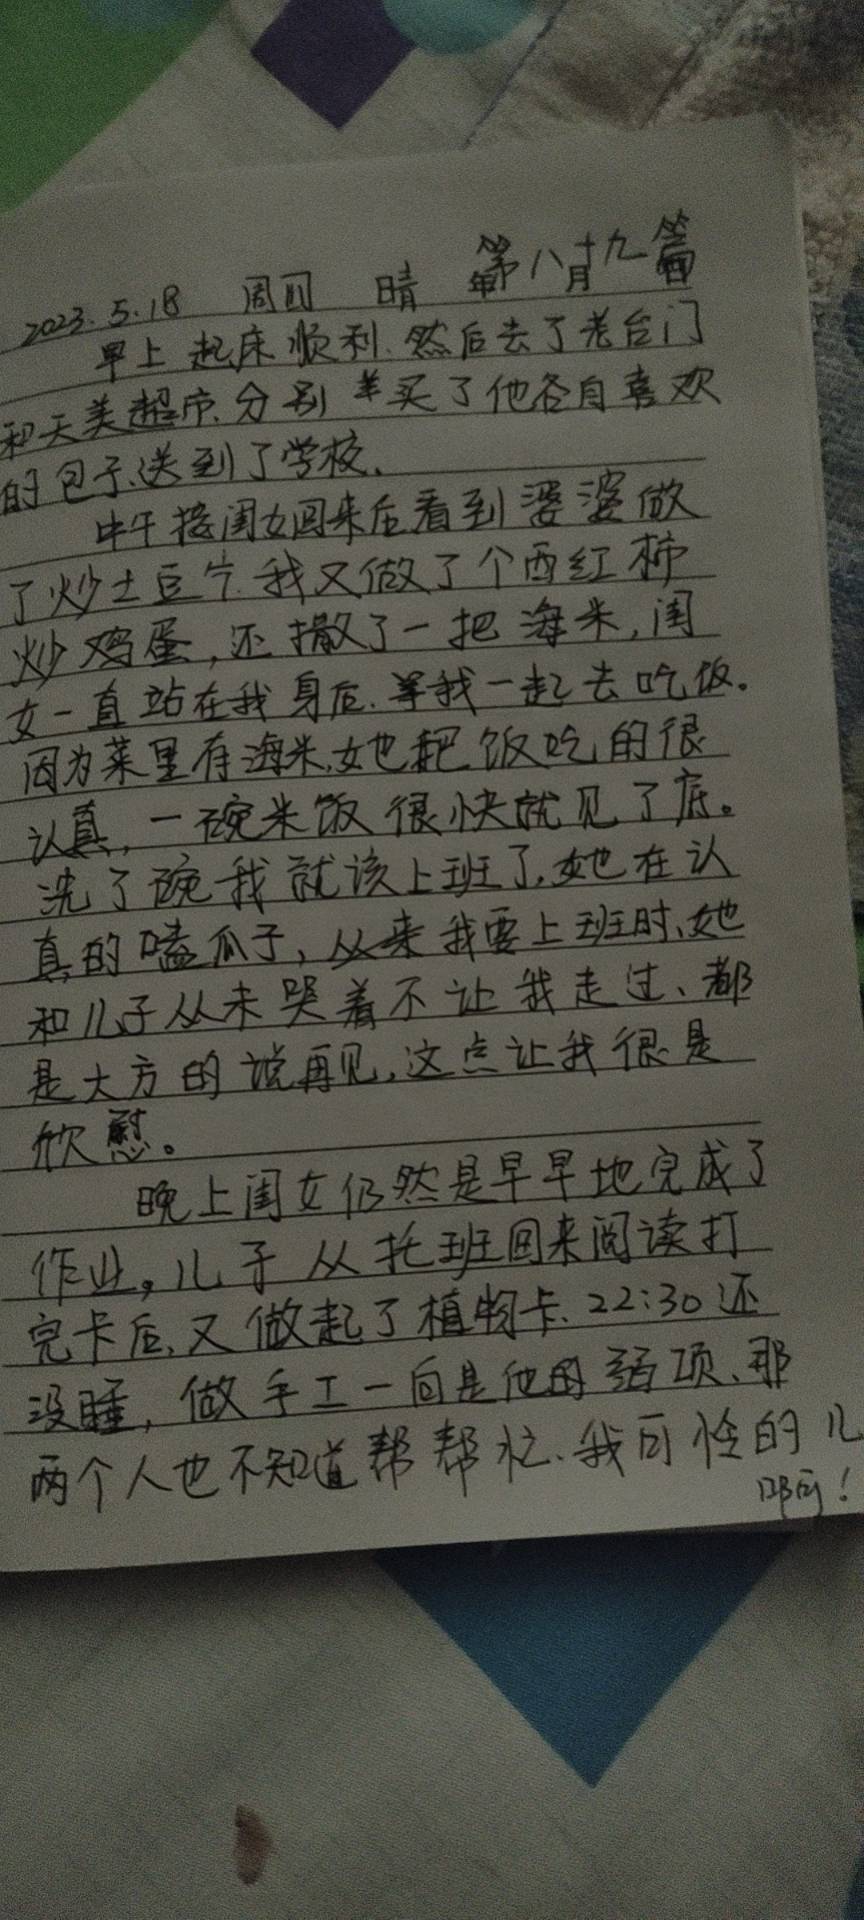 2023.5.18 周四 晴 第八十九篇
早上起床顺利、然后去了老台门
和天美超市、分别买了他各自喜欢
的包子、送到了学校、
中午接闺女回来后看到婆婆做
了炒土豆片、我又做了个西红柿
炒鸡蛋，还撒了一把海米，闺
女一直站在我身后、等我一起去吃饭。
因为菜里有海米、她也把饭吃的很
认真，一碗米饭很快就见了底。
洗了碗我就该上班了、她在认
真的嗑瓜子，从来我要上班时、她
和儿子从未哭着不让我走过、都
是大方的说再见，这点让我很是
欣慰。
晚上闺女仍然是早早地完成了
作业。儿子从托班回来阅读打
完卡后、又做起了植物卡、22:30还
没睡，做手工一向是他的弱项、那
两个人也不知道帮帮忙、我可怜的儿
啊！